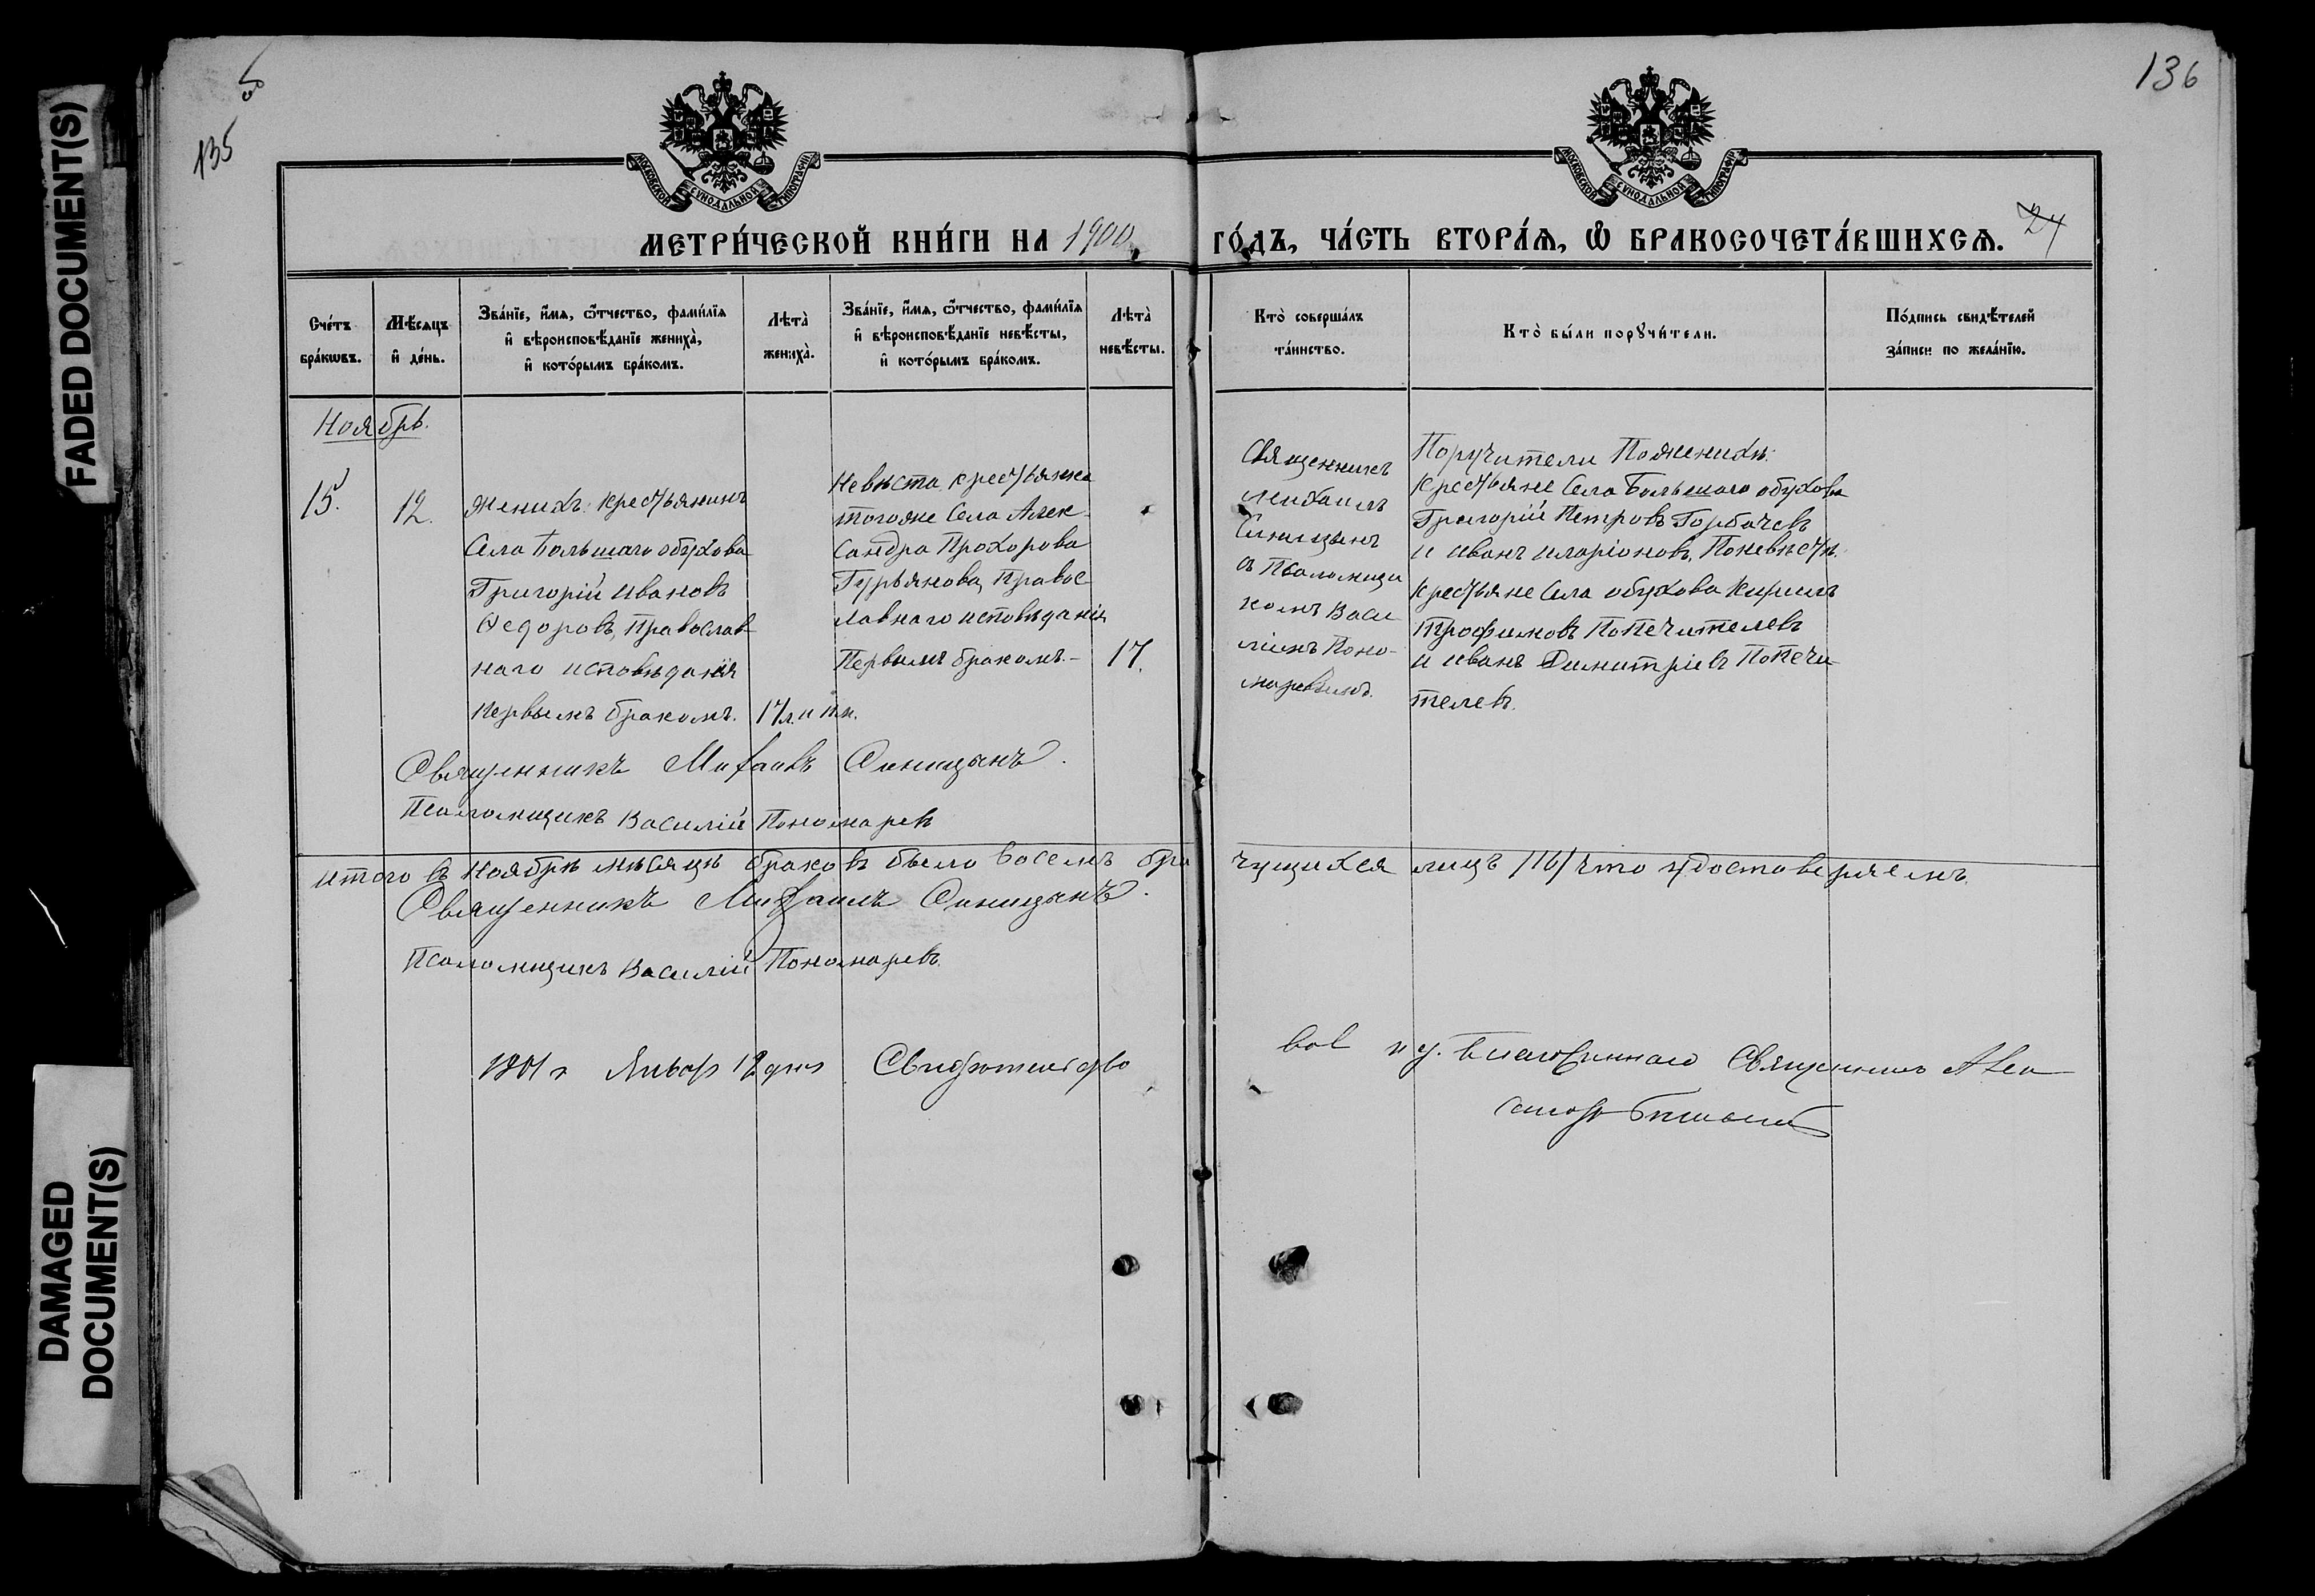 FADED DOCUMENT(S)
DAMAGED
DOCUMENT(S)
135
136
МОСКОВСКОЙ СѴНОДАЛЬНОЙ ТИПОГРАФІИ
МОСКОВСКОЙ СѴНОДАЛЬНОЙ ТИПОГРАФІИ
МЕТРИ́ЧЕСКОЙ КНИ́ГИ НА 1900
ГО́ДЪ, ЧА́СТЬ ВТОРА́Ѧ, Ѽ БРАКОСОЧЕТА́ВШИХСѦ.
24
Сче́тъ
бра́кѡвъ.
Мѣ́сѧцъ
и҆ де́нь.
Зва́нїе, и҆́мѧ, ѻ҆́тчество, фами́лїѧ
и҆ вѣроисповѣ́данїе жениха̀,
и҆ кото́рымъ бра́комъ.
Лѣта̀
жениха̀.
Зва́нїе, и҆́мѧ, ѻ҆́тчество, фами́лїѧ
и҆ вѣроисповѣ́данїе невѣ́сты,
и҆ кото́рымъ бра́комъ.
Лѣта̀
невѣ́сты.
Кто̀ соверша́лъ
та́инство.
Кто̀ бы́ли порꙋчи́тели.
По́дпись свидѣ́телей
за́писи по жела́нїю.
Ноябрь.
15.
12.
Женихъ: крестьянинъ
Села Большаго обухова
Григорій Ивановъ
Ѳедоровъ, Православ-
наго исповѣданія
Первымъ бракомъ.
17л. и
Невѣста крестьянка
тогоже Села Алек-
сандра Прохорова
Гурьянова, Правос-
лавнаго исповѣданія
Первымъ бракомъ.-
17.
Священникъ
михаилъ
Синицынъ
съ Псаломщи
комъ Васи
ліемъ Поно-
маревымъ.
Поручители По женихѣ:
крестьяне Села Большаго обухова
Григорій Петровъ Горбачевъ
и иванъ иларіоновъ. По невѣстѣ:
крестьяне Села обухова Кирилъ
Трофимовъ Попечителевъ
и иванъ Димитріевъ Попечи-
телевъ.
Священникъ Михаилъ Синицынъ.
Псаломщикъ Василій Пономаревъ
итого въ Ноябрѣ мѣсяцѣ браковъ было восемь бра
чущихся лицъ /16/ что удостовѣряемъ.
Священникъ Михаилъ Синицынъ.
Псаломщикъ Василій Пономаревъ.
1901 г Январ 12 дня Свидѣтельство
вал и д. благочиннаго Священникъ Алек